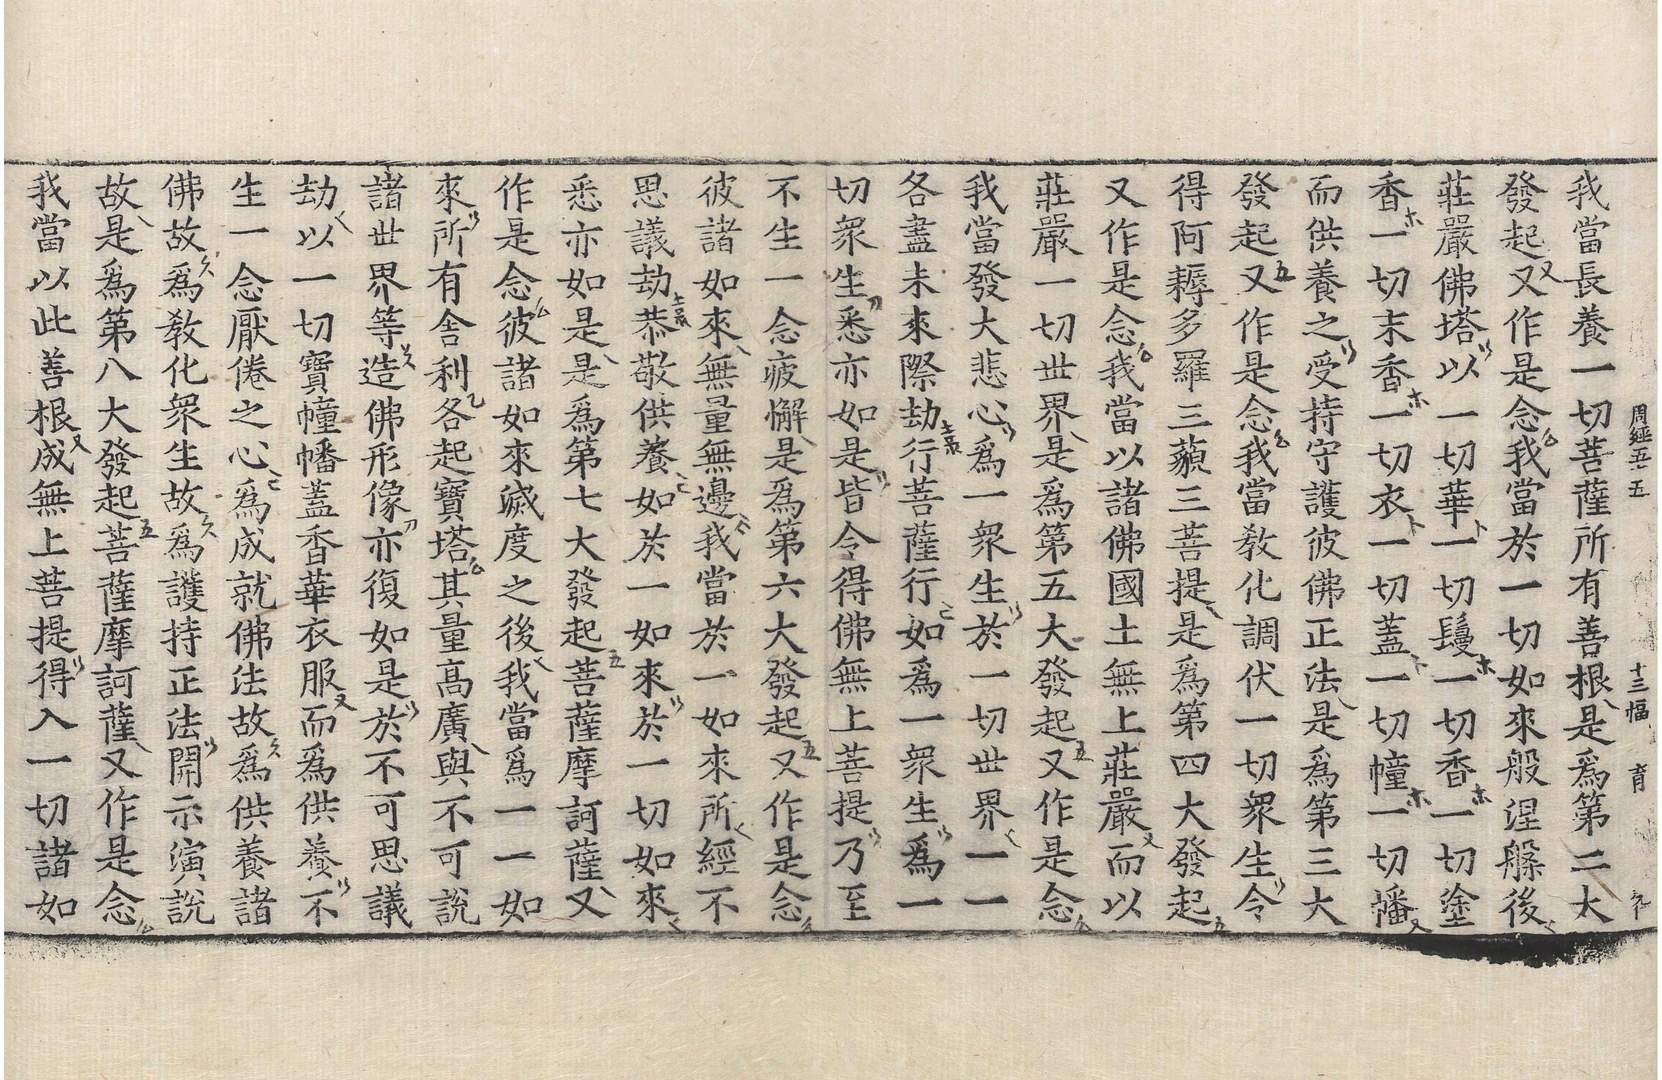 周經五五　十三幅　育
我當長養一切菩薩所有善根是爲第二大
發起又作是念我當於一切如來般涅槃後
莊嚴佛塔以一切華一切鬘一切香一切塗
香一切末香一切衣一切蓋一切幢一切幡
而供養之受持守護彼佛正法是爲第三大
發起又作是念我當教化調伏一切衆生令
得阿耨多羅三藐三菩提是爲第四大發起
又作是念我當以諸佛國土無上莊嚴而以
莊嚴一切世界是爲第五大發起又作是念
我當發大悲心爲一衆生於一切世界一一
各盡未來際劫行菩薩行如爲一衆生爲一
切衆生悉亦如是皆令得佛無上菩提乃至
不生一念疲懈是爲第六大發起又作是念
彼諸如來無量無邊我當於一如來所經不
思議劫恭敬供養如於一如來於一切如來
悉亦如是是爲第七大發起菩薩摩訶薩又
作是念彼諸如來滅度之後我當爲一一如
來所有舍利各起寶塔其量高廣與不可說
諸世界等造佛形像亦復如是於不可思議
劫以一切寶幢幡蓋香華衣服而爲供養不
生一念厭倦之心爲成就佛法故爲供養諸
佛故爲教化衆生故爲護持正法開示演說
故是爲第八大發起菩薩摩訶薩又作是念
我當以此善根成無上菩提得入一切諸如